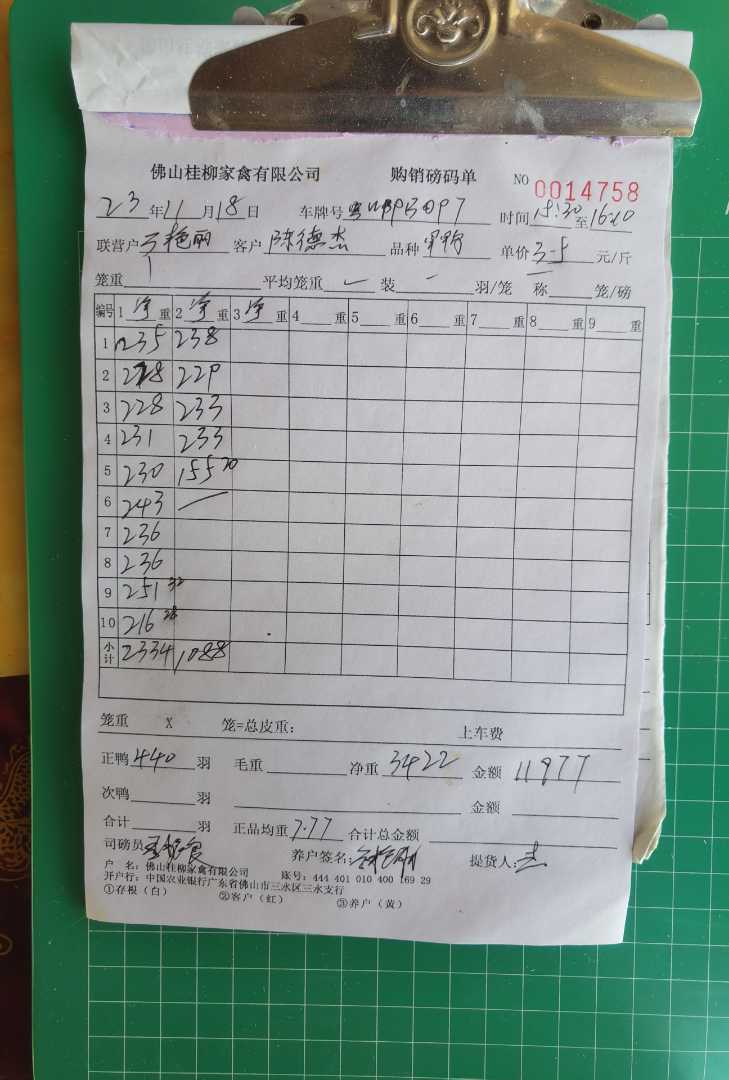 佛山桂柳家禽有限公司 购销磅码单 NO 0014758
23年11月18日 车牌号 时间15:30至16:10
联营户 艳丽 客户 陈德杰 品种 单价3.5元/斤
笼重 平均笼重 装 羽/笼 称 笼/磅
编号 1净重 2净重 3净重 4 重 5 重 6 重 7 重 8 重 9 重
1 235 238
2 228 229
3 228 233
4 231 233
5 230 155 20
6 243
7 236
8 236
9 251 32
10 216 28
小计 2334 1088
笼重 X 笼=总皮重: 上车费
正鸭440羽 毛重 净重3422 金额11977
次鸭 羽 金额
合计 羽 正品均重7.77 合计总金额
司磅员 养户签名: 提货人:杰
户 名: 佛山桂柳家禽有限公司 账号: 444 401 010 400 169 29
开户行: 中国农业银行广东省佛山市三水区三水支行
①存根(白) ②客户(红) ③养户(黄)